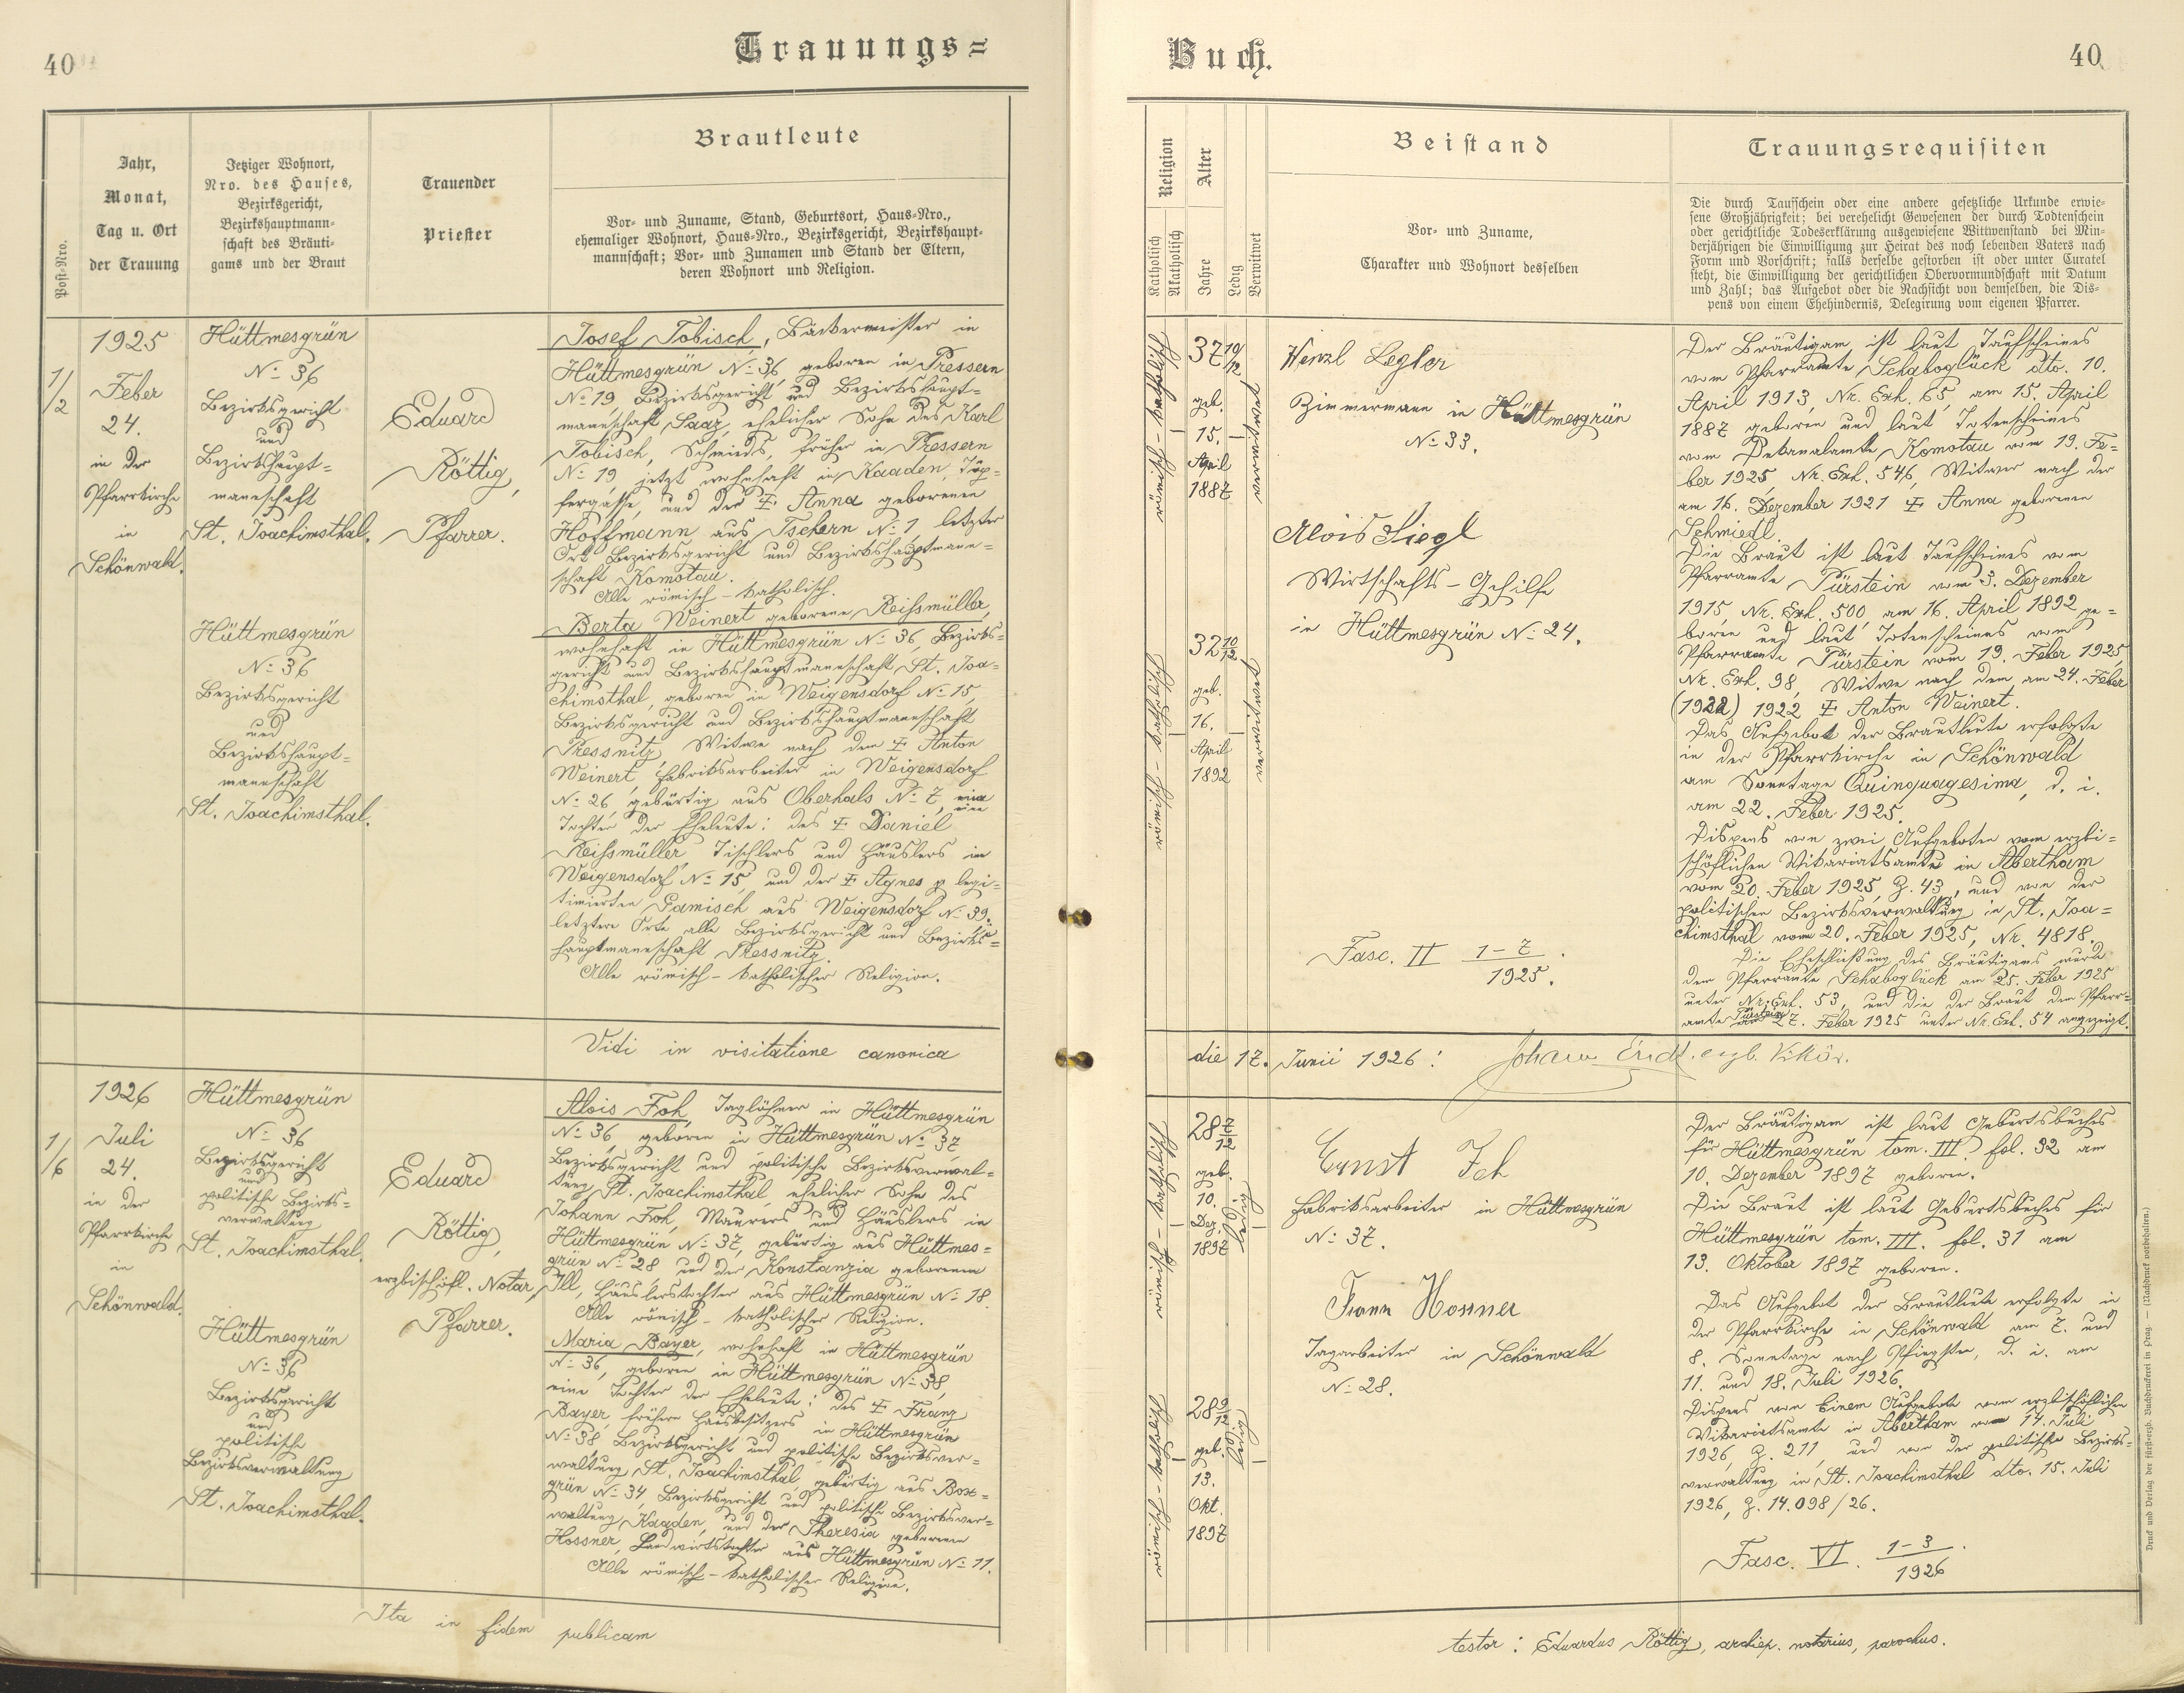 40
Trauungs=
Post-Nro.
Jahr,
Monat,
Tag u. Ort
der Trauung
Jetziger Wohnort,
Nro. des Hauses,
Bezirksgericht,
Bezirkshauptmann-
schaft des Bräuti-
gams und der Braut
Trauender
Priester
Brautleute
Vor- und Zuname, Stand, Geburtsort, Haus-Nro.,
ehemaliger Wohnort, Haus-Nro., Bezirksgericht, Bezirkshaupt-
mannschaft; Vor- und Zunamen und Stand der Eltern,
deren Wohnort und Religion.
1/2
1925
Feber
24.
in der
Pfarrkirche
in
Schönwald.
Hüttmesgrün
No 36
Bezirksgericht
und
Bezirkshaupt=
mannschaft
St. Joachimsthal.
Hüttmesgrün
No 36
Bezirksgericht
und
Bezirkshaupt=
mannschaft
St. Joachimsthal.
Eduard
Röttig,
Pfarrer.
Josef Tobisch, Bäckermeister in
Hüttmesgrün No 36, geboren in Pressern
No 19, Bezirksgericht und Bezirkshaupt=
mannschaft Saaz, ehelicher Sohn des Karl
Tobisch, Schmieds, früher in Pressern
No 19, jetzt wohnhaft in Kaaden, Töp-
fergasse, und der ‡ Anna geborenen
Hoffmann aus Tschern No 1, letzter
Ort Bezirksgericht und Bezirkshauptmann=
schaft Komotau.
Alle römisch-katholisch.
Berta Weinert geborene Reissmüller,
wohnhaft in Hüttmesgrün No 36, Bezirks=
gericht und Bezirkshauptmannschaft St. Joa-
chimsthal, geboren in Weigensdorf No 15,
Bezirksgericht und Bezirkshauptmannschaft
Pressnitz, Witwe nach dem ‡ Anton
Weinert, Fabriksarbeiter in Weigensdorf
No 26, gebürtig aus Oberhals No 7, eine
Tochter der Eheleute: des ‡ Daniel
Reissmüller, Tischlers und Häuslers in
Weigensdorf No 15, und der ‡ Agnes p. legi-
timierten Gamisch aus Weigensdorf No 39,
letztere Orte alle Bezirksgericht und Bezirks=
hauptmannschaft Pressnitz.
Alle römisch-katholischer Religion.
Vidi in visitatione canonica
1/6
1926
Juli
24.
in der
Pfarrkirche
in
Schönwald.
Hüttmesgrün
No 36
Bezirksgericht
und
politische Bezirks=
verwaltung
St. Joachimsthal.
Hüttmesgrün
No 36
Bezirksgericht
und
politische
Bezirksverwaltung
St. Joachimsthal.
Eduard
Röttig,
erzbischöfl. Notar,
Pfarrer.
Alois Foh, Taglöhner in Hüttmesgrün
No 36, geboren in Hüttmesgrün No 37
Bezirksgericht und politische Bezirksverwal-
tung St. Joachimsthal, ehelicher Sohn des
Johann Foh, Maurers und Häuslers in
Hüttmesgrün No 37, gebürtig aus Hüttmes=
grün No 28 und der Konstanzia geborenen
Ill, Häuslerstochter aus Hüttmesgrün No 18.
Alle römisch-katholischer Religion.
Maria Bayer, wohnhaft in Hüttmesgrün
No 36, geboren in Hüttmesgrün No 38,
eine Tochter der Eheleute: des ‡ Franz
Bayer, früheren Hausbesitzers in Hüttmesgrün
No 38, Bezirksgericht und politische Bezirksver=
waltung St. Joachimsthal, gebürtig aus Box=
grün No 34, Bezirksgericht und politische Bezirksver=
waltung Kaaden, und der Theresia geborenen
Hossner, Landwirtstochter aus Hüttmesgrün No 11.
Alle römisch-katholischer Religion.
Ita in fidem publicam
Buch.
40
Religion
Katholisch
Akatholisch
Alter
Jahre
Ledig
Verwitwet
Beistand
Vor- und Zuname,
Charakter und Wohnort desselben
Trauungsrequisiten
Die durch Taufschein oder eine andere gesetzliche Urkunde erwie-
sene Großjährigkeit; bei verehelicht Gewesenen der durch Todtenschein
oder gerichtliche Todeserklärung ausgewiesene Wittwenstand bei Min-
derjährigen die Einwilligung zur Heirat des noch lebenden Vaters nach
Form und Vorschrift; falls derselbe gestorben ist oder unter Curatel
steht, die Einwilligung der gerichtlichen Obervormundschaft mit Datum
und Zahl; das Aufgebot oder die Nachsicht von demselben, die Dis-
pens von einem Ehehindernis, Delegirung vom eigenen Pfarrer.
römisch-katholisch
37 10/12
geb.
15.
April
1887
verwitwet
römisch-katholisch
32 10/12
geb.
16.
April
1892
verwitwet
Wenzl Legler
Zimmermann in Hüttmesgrün
No 33.
Alois Siegl
Wirtschafts-Gehilfe
in Hüttmesgrün No 24.
Fasc. II 1-7/1925.
Der Bräutigam ist laut Taufscheines
vom Pfarramte Schaboglück dto. 10.
April 1913, Nr. Exh. 65, am 15. April
1887 geboren und laut Totenscheines
vom Dekanalamte Komotau vom 19. Fe-
ber 1925, Nr. Exh. 546, Witwer nach der
am 16. Dezember 1921 ‡ Anna geborenen
Schmiedl
Die Braut ist laut Taufscheines vom
Pfarramte Pürstein vom 3. Dezember
1915, Nr. Exh. 500, am 16. April 1892 ge=
boren und laut Totenscheines vom
Pfarramte Pürstein vom 19. Feber 1925,
Nr. Exh. 98, Witwe nach dem am 24. Feber
(1922) 1922 ‡ Anton Weinert.
Das Aufgebot der Brautleute erfolgte
in der Pfarrkirche in Schönwald
am Sonntage Quinquagesima, d. i.
am 22. Feber 1925.
Dispens von zwei Aufgeboten vom erzbi=
schöflichen Vikariatsamte in Abertham
vom 20. Feber 1925, Z. 43, und von der
politischen Bezirksverwaltung in St. Joa=
chimsthal vom 20. Feber 1925, Nr. 4818.
Die Eheschließung des Bräutigams wurde
dem Pfarramte Schaboglück am 25. Feber 1925
unter Nr. Exh. 53, und die der Braut dem Pfarr=
amte Pürstein am 27. Feber 1925 unter Nr. Exh. 54 angezeigt.
die 17. Junii 1926: Johann Endt, erzb. Vikär.
römisch-katholisch
28 7/12
geb.
10.
Dez.
1897
ledig
römisch-katholisch
28 9/12
geb.
13.
Okt.
1897
ledig
Ernst Feh
Fabriksarbeiter in Hüttmesgrün
No 37.
Franz Hossner
Tagarbeiter in Schönwald
No 28.
Der Bräutigam ist laut Geburtsbuches
für Hüttmesgrün tom. III. fol. 32 am
10. Dezember 1897 geboren.
Die Braut ist laut Geburtsbuches für
Hüttmesgrün tom. III. fol. 31 am
13. Oktober 1897 geboren.
Das Aufgebot der Brautleute erfolgte in
der Pfarrkirche in Schönwald am 7. und
8. Sonntage nach Pfingsten, d. i. am
11. und 18. Juli 1926.
Dispens von Einem Aufgebote vom erzbischöflichen
Vikariatsamte in Abertham vom 14. Juli
1926, Z. 211, und von der politischen Bezirks=
verwaltung in St. Joachimsthal dto. 15. Juli
1926, Z. 14.098/26.
Fasc. VI. 1-3/1926.
testor: Eduardus Röttig, archiep. notarius, parochus.
Druck und Verlag der fürst-erzb. Buchdruckerei in Prag. — (Nachdruck vorbehalten.)